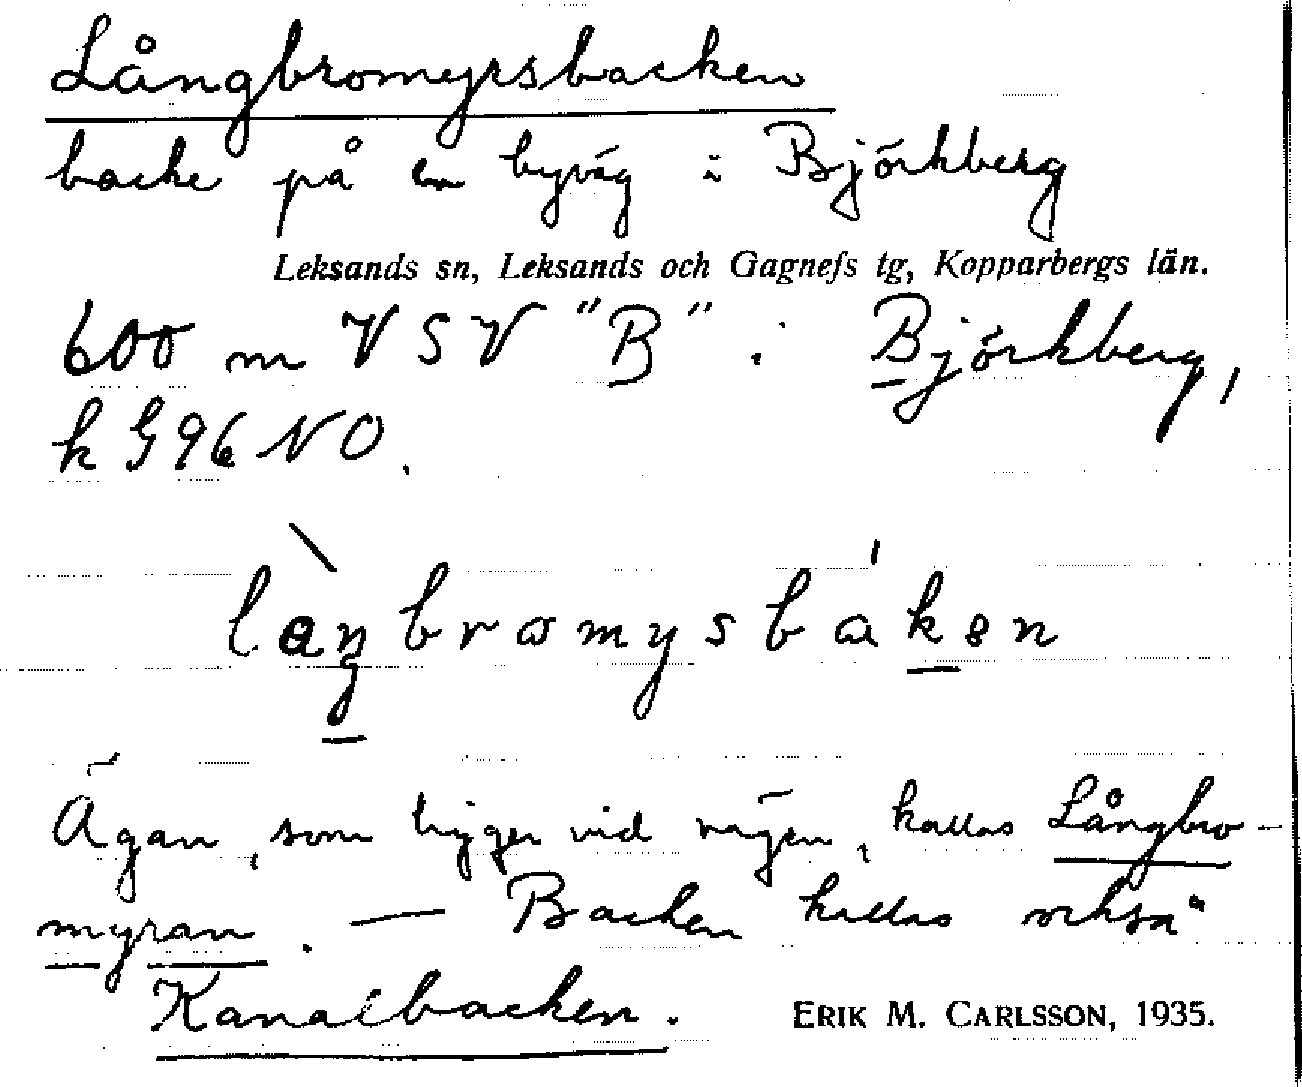 Långbromyrsbacken
backe på en byväg i Björkberg
Leksands sn, Leksands och Gagnefs tg, Kopparbergs län.
600 m VSV "B" i Björkberg,
k G96 NO.
làŋbromysbákən
Ägan, som ligger vid vägen, kallas Långbro-
myran. — Backen kallas också
Kanalbacken.
ERIK M. CARLSSON, 1935.